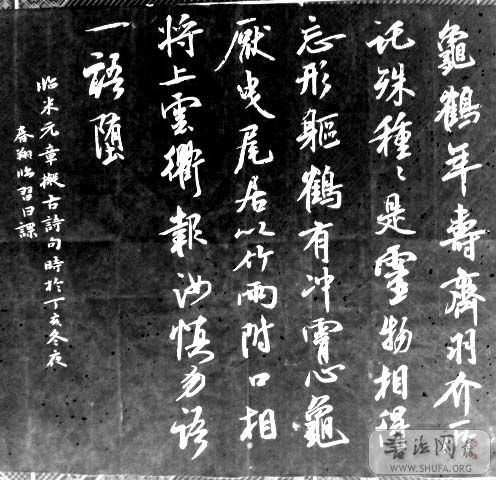 龜鶴年壽齊羽介所
託殊種〻是靈物相得
忘形軀鶴有冲霄心龜
厭曳尾居以竹兩附口相
将上雲衢報汝慎勿語
一語墮
临米元章擬古詩句時於丁亥冬夜
春翔临習日課
書法网
WWW.SHUFA.ORG